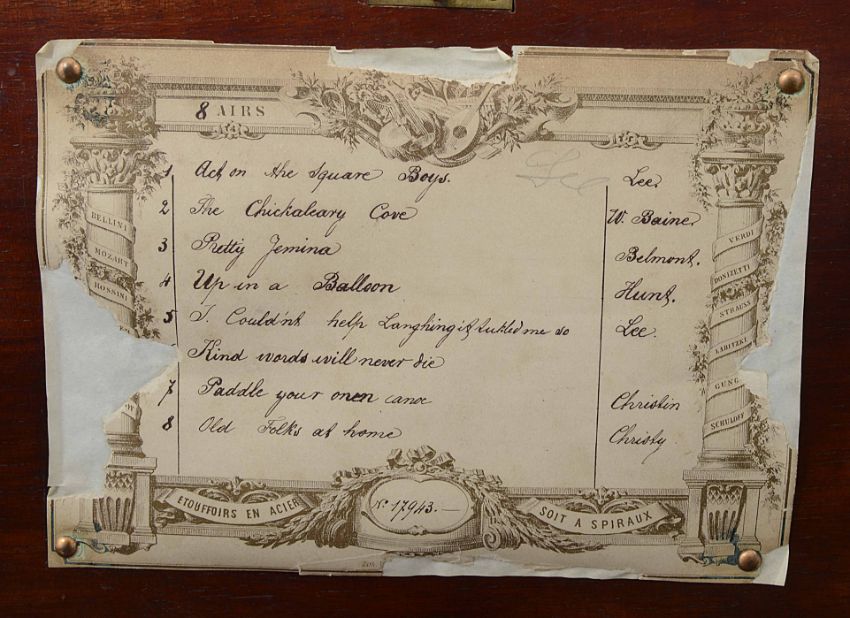 8 AIRS
1 Act on the Square Boys. Lee Lee.
2 The Chickaleary Cove W. Baine.
3 Pretty Jemina Belmont.
4 Up in a Balloon Hunt.
5 I. Could'nt help Laughing it tickled me so Lee.
Kind words will never die
7 Paddle your onen canoe Christin
8 Old Folks at home Christy
BELLINI
MOZART
ROSSINI
VERDI
DONIZETTI
STRAUSS
LABITZKI
GUNG
SCHULOFF
ETOUFFOIRS EN ACIER
No. 17943.—
SOIT A SPIRAUX